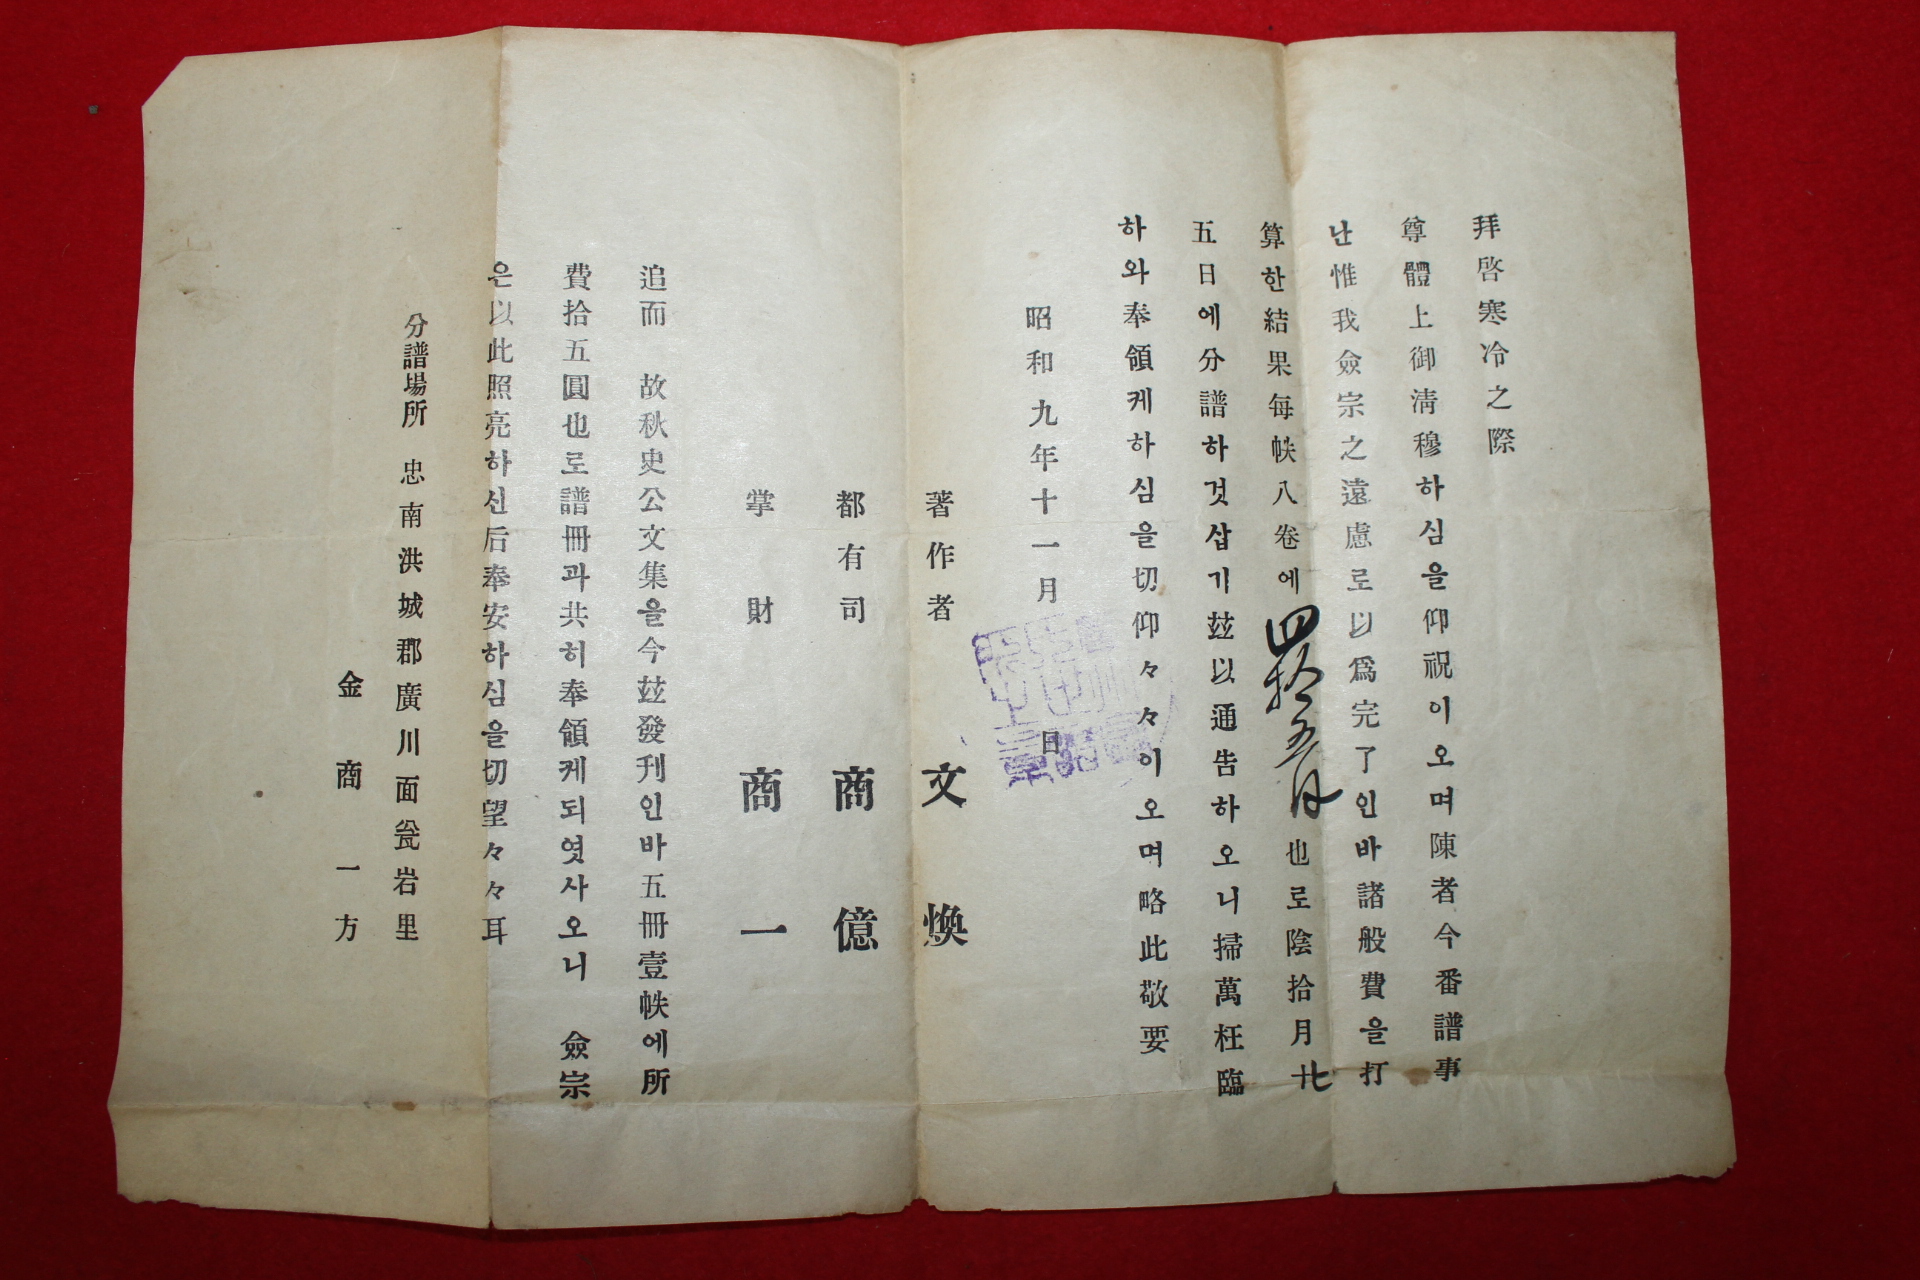 拜啓寒冷之際
尊體上御淸穆하심을仰祝이오며陳者今番譜事
난惟我僉宗之遠慮로以爲完了인바諸般費을打
算한結果每帙八卷에四拾五円也로陰拾月廿
五日에分譜하것삽기玆以通告하오니掃萬枉臨
하와奉領케하심을切仰々々이오며略此敬要
昭和九年十一月 日
著作者 文煥
都有司 商億
掌財 商一
追而 故秋史公文集을今玆發刊인바五冊壹帙에所
費拾五圓也로譜冊과共히奉領케되엿사오니 僉宗
은以此照亮하신后奉安하심을切望々々耳
分譜場所 忠南洪城郡廣川面瓮岩里
金商一方